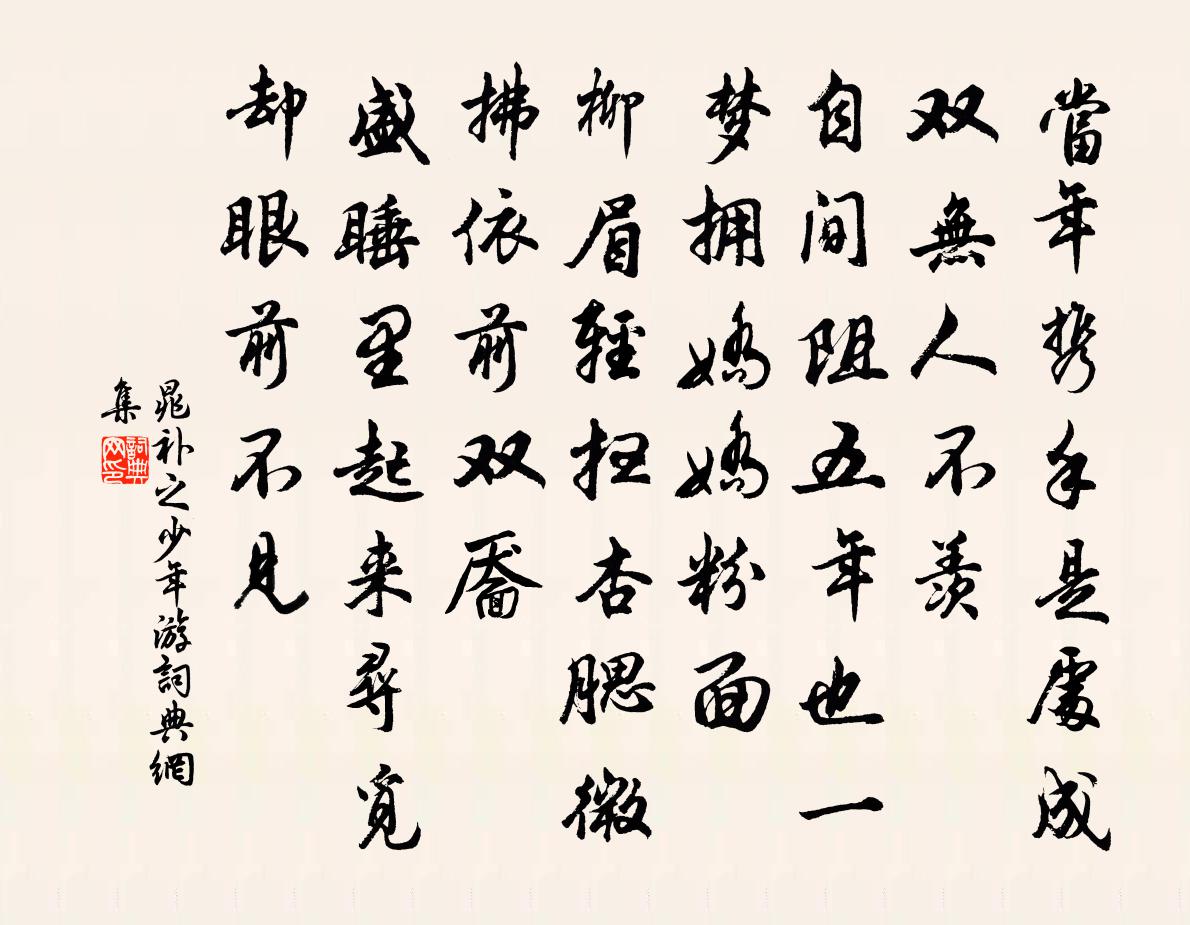 當年携手是處成
双無人不羨
自间阻五年也一
梦拥嬌嬌粉面
柳眉輕扫杏腮微
拂依前双靥
盛睡里起来尋覓
却眼前不見
晁补之少年游詞典網
集
詞典网印